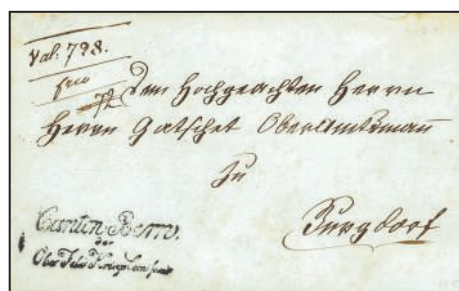 Val: 798.
frco
72
Dem Hochgeachten Herrn
Herrn Gatschet Oberamtsmann
Zu
Burgdorf
Canton Bern.
der
Ober Feld Kriegs